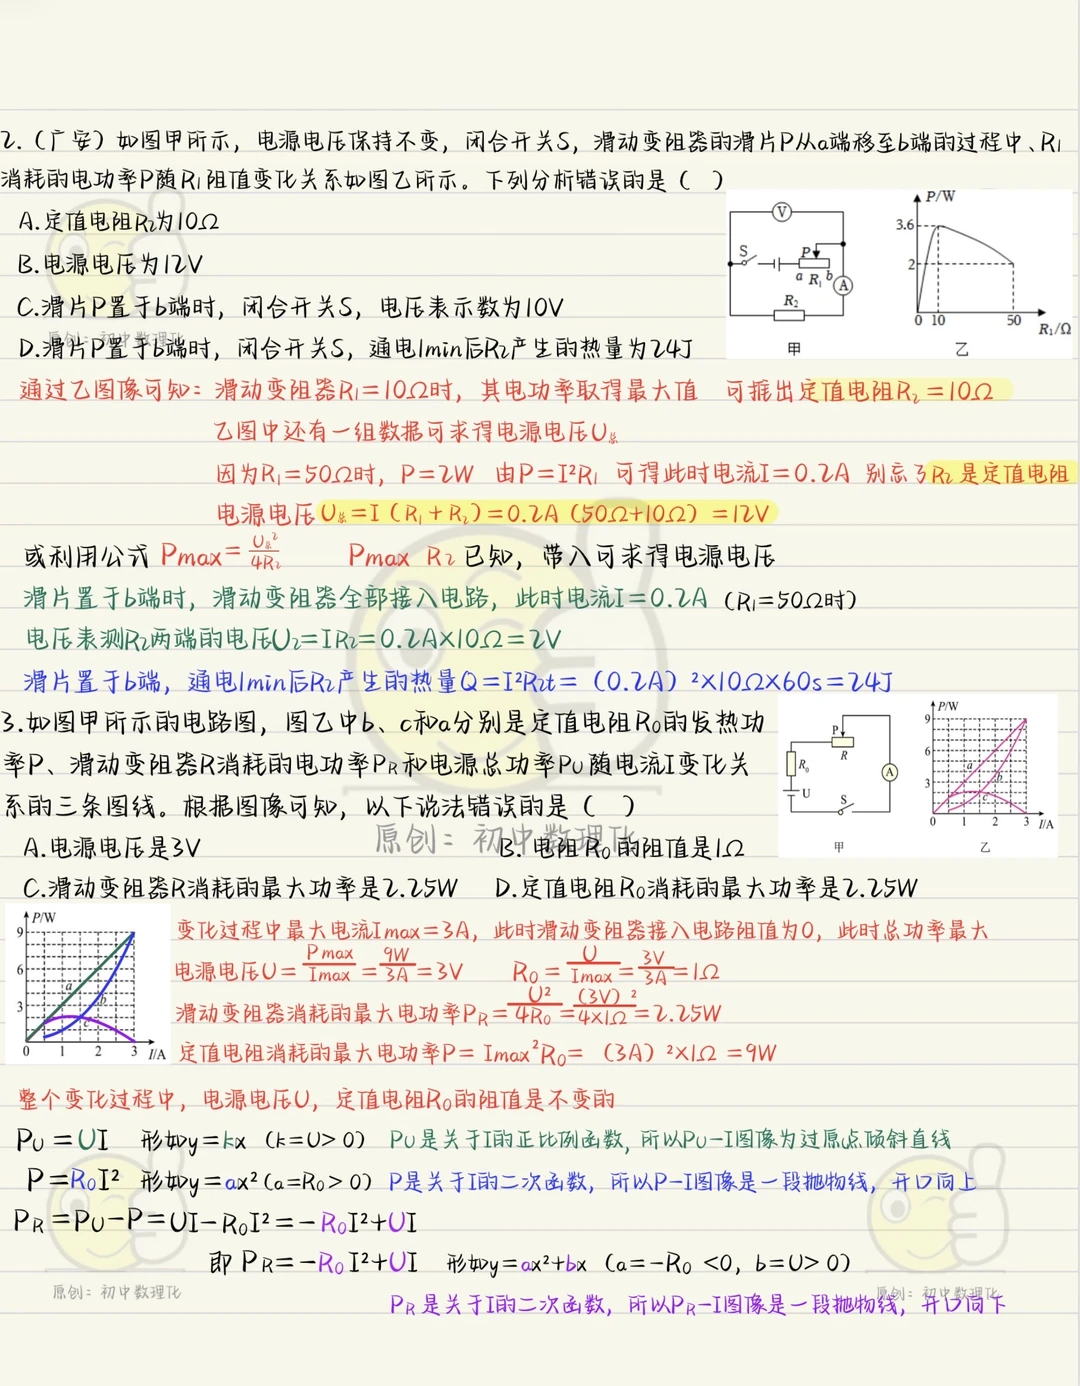 2.（广安）如图甲所示，电源电压保持不变，闭合开关S，滑动变阻器的滑片P从a端移至b端的过程中、R₁
消耗的电功率P随R₁阻值变化关系如图乙所示。下列分析错误的是（ ）
A.定值电阻R₂为10Ω
B.电源电压为12V
C.滑片P置于b端时，闭合开关S，电压表示数为10V
D.滑片P置于b端时，闭合开关S，通电1min后R₂产生的热量为24J
V
S
P
a R₁ b
A
R₂
甲
P/W
3.6
2
0 10 50 R₁/Ω
乙
原创：初中数理化
通过乙图像可知：滑动变阻器R₁=10Ω时，其电功率取得最大值 可推出定值电阻R₂=10Ω
乙图中还有一组数据可求得电源电压U总
因为R₁=50Ω时，P=2W 由P=I²R₁ 可得此时电流I=0.2A 别忘了R₂是定值电阻
电源电压U总=I（R₁+R₂）=0.2A（50Ω+10Ω）=12V
或利用公式 Pmax=U总²/4R₂ Pmax R₂已知，带入可求得电源电压
滑片置于b端时，滑动变阻器全部接入电路，此时电流I=0.2A（R₁=50Ω时）
电压表测R₂两端的电压U₂=IR₂=0.2A×10Ω=2V
滑片置于b端，通电1min后R₂产生的热量Q=I²R₂t=（0.2A）²×10Ω×60s=24J
3.如图甲所示的电路图，图乙中b、c和a分别是定值电阻R₀的发热功
率P、滑动变阻器R消耗的电功率PR和电源总功率PU随电流I变化关
系的三条图线。根据图像可知，以下说法错误的是（ ）
A.电源电压是3V B. 电阻R₀的阻值是1Ω
C.滑动变阻器R消耗的最大功率是2.25W D.定值电阻R₀消耗的最大功率是2.25W
原创：初中数理化
P
R
R₀
A
U
S
甲
P/W
9
6
3
a
b
c
0 1 2 3 I/A
乙
P/W
9
6
3
a
b
c
0 1 2 3 I/A
变化过程中最大电流Imax=3A，此时滑动变阻器接入电路阻值为0，此时总功率最大
电源电压U=Pmax/Imax=9W/3A=3V R₀=U/Imax=3V/3A=1Ω
滑动变阻器消耗的最大电功率PR=U²/4R₀=（3V）²/4×1Ω=2.25W
定值电阻消耗的最大电功率P=Imax²R₀=（3A）²×1Ω=9W
整个变化过程中，电源电压U，定值电阻R₀的阻值是不变的
PU=UI 形如y=kx（k=U>0） PU是关于I的正比例函数，所以PU-I图像为过原点倾斜直线
P=R₀I² 形如y=ax²（a=R₀>0） P是关于I的二次函数，所以P-I图像是一段抛物线，开口向上
PR=PU-P=UI-R₀I²=-R₀I²+UI
即 PR=-R₀I²+UI 形如y=ax²+bx（a=-R₀<0，b=U>0）
原创：初中数理化
原创：初中数理化
PR是关于I的二次函数，所以PR-I图像是一段抛物线，开口向下